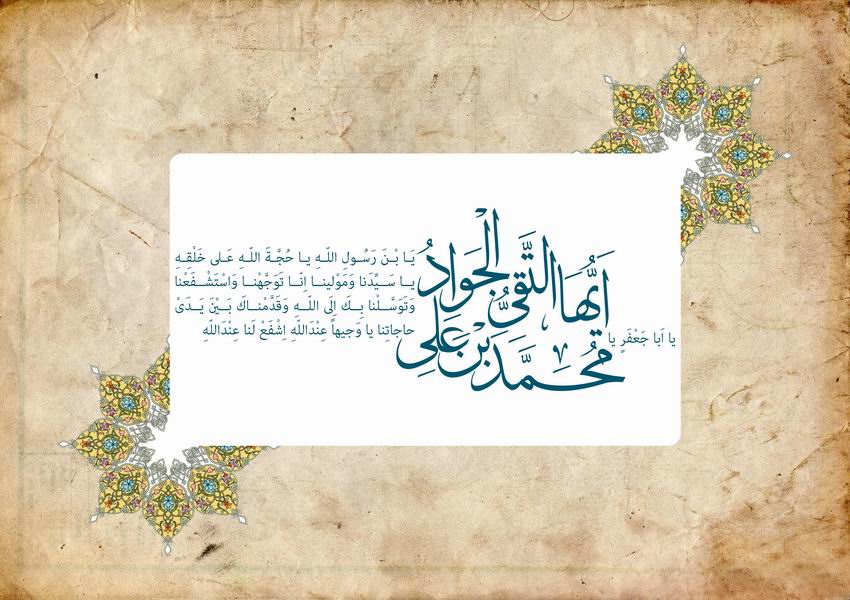 يا اَبا جَعْفَرٍ يا
مُحَمَّدَ بْنَ عَلِىٍّ
اَيُّهَا التَّقِىُّ الْجَوادُ
يَا بْنَ رَسُولِ اللّهِ يا حُجَّةَ اللّهِ عَلى خَلْقِهِ
يا سَيِّدَنا وَمَوْلينا اِنّا تَوَجَّهْنا وَاسْتَشْفَعْنا
وَتَوَسَّلْنا بِكَ اِلَى اللّهِ وَقَدَّمْناكَ بَيْنَ يَدَىْ
حاجاتِنا يا وَجيهاً عِنْدَاللّهِ اِشْفَعْ لَنا عِنْدَاللّهِ